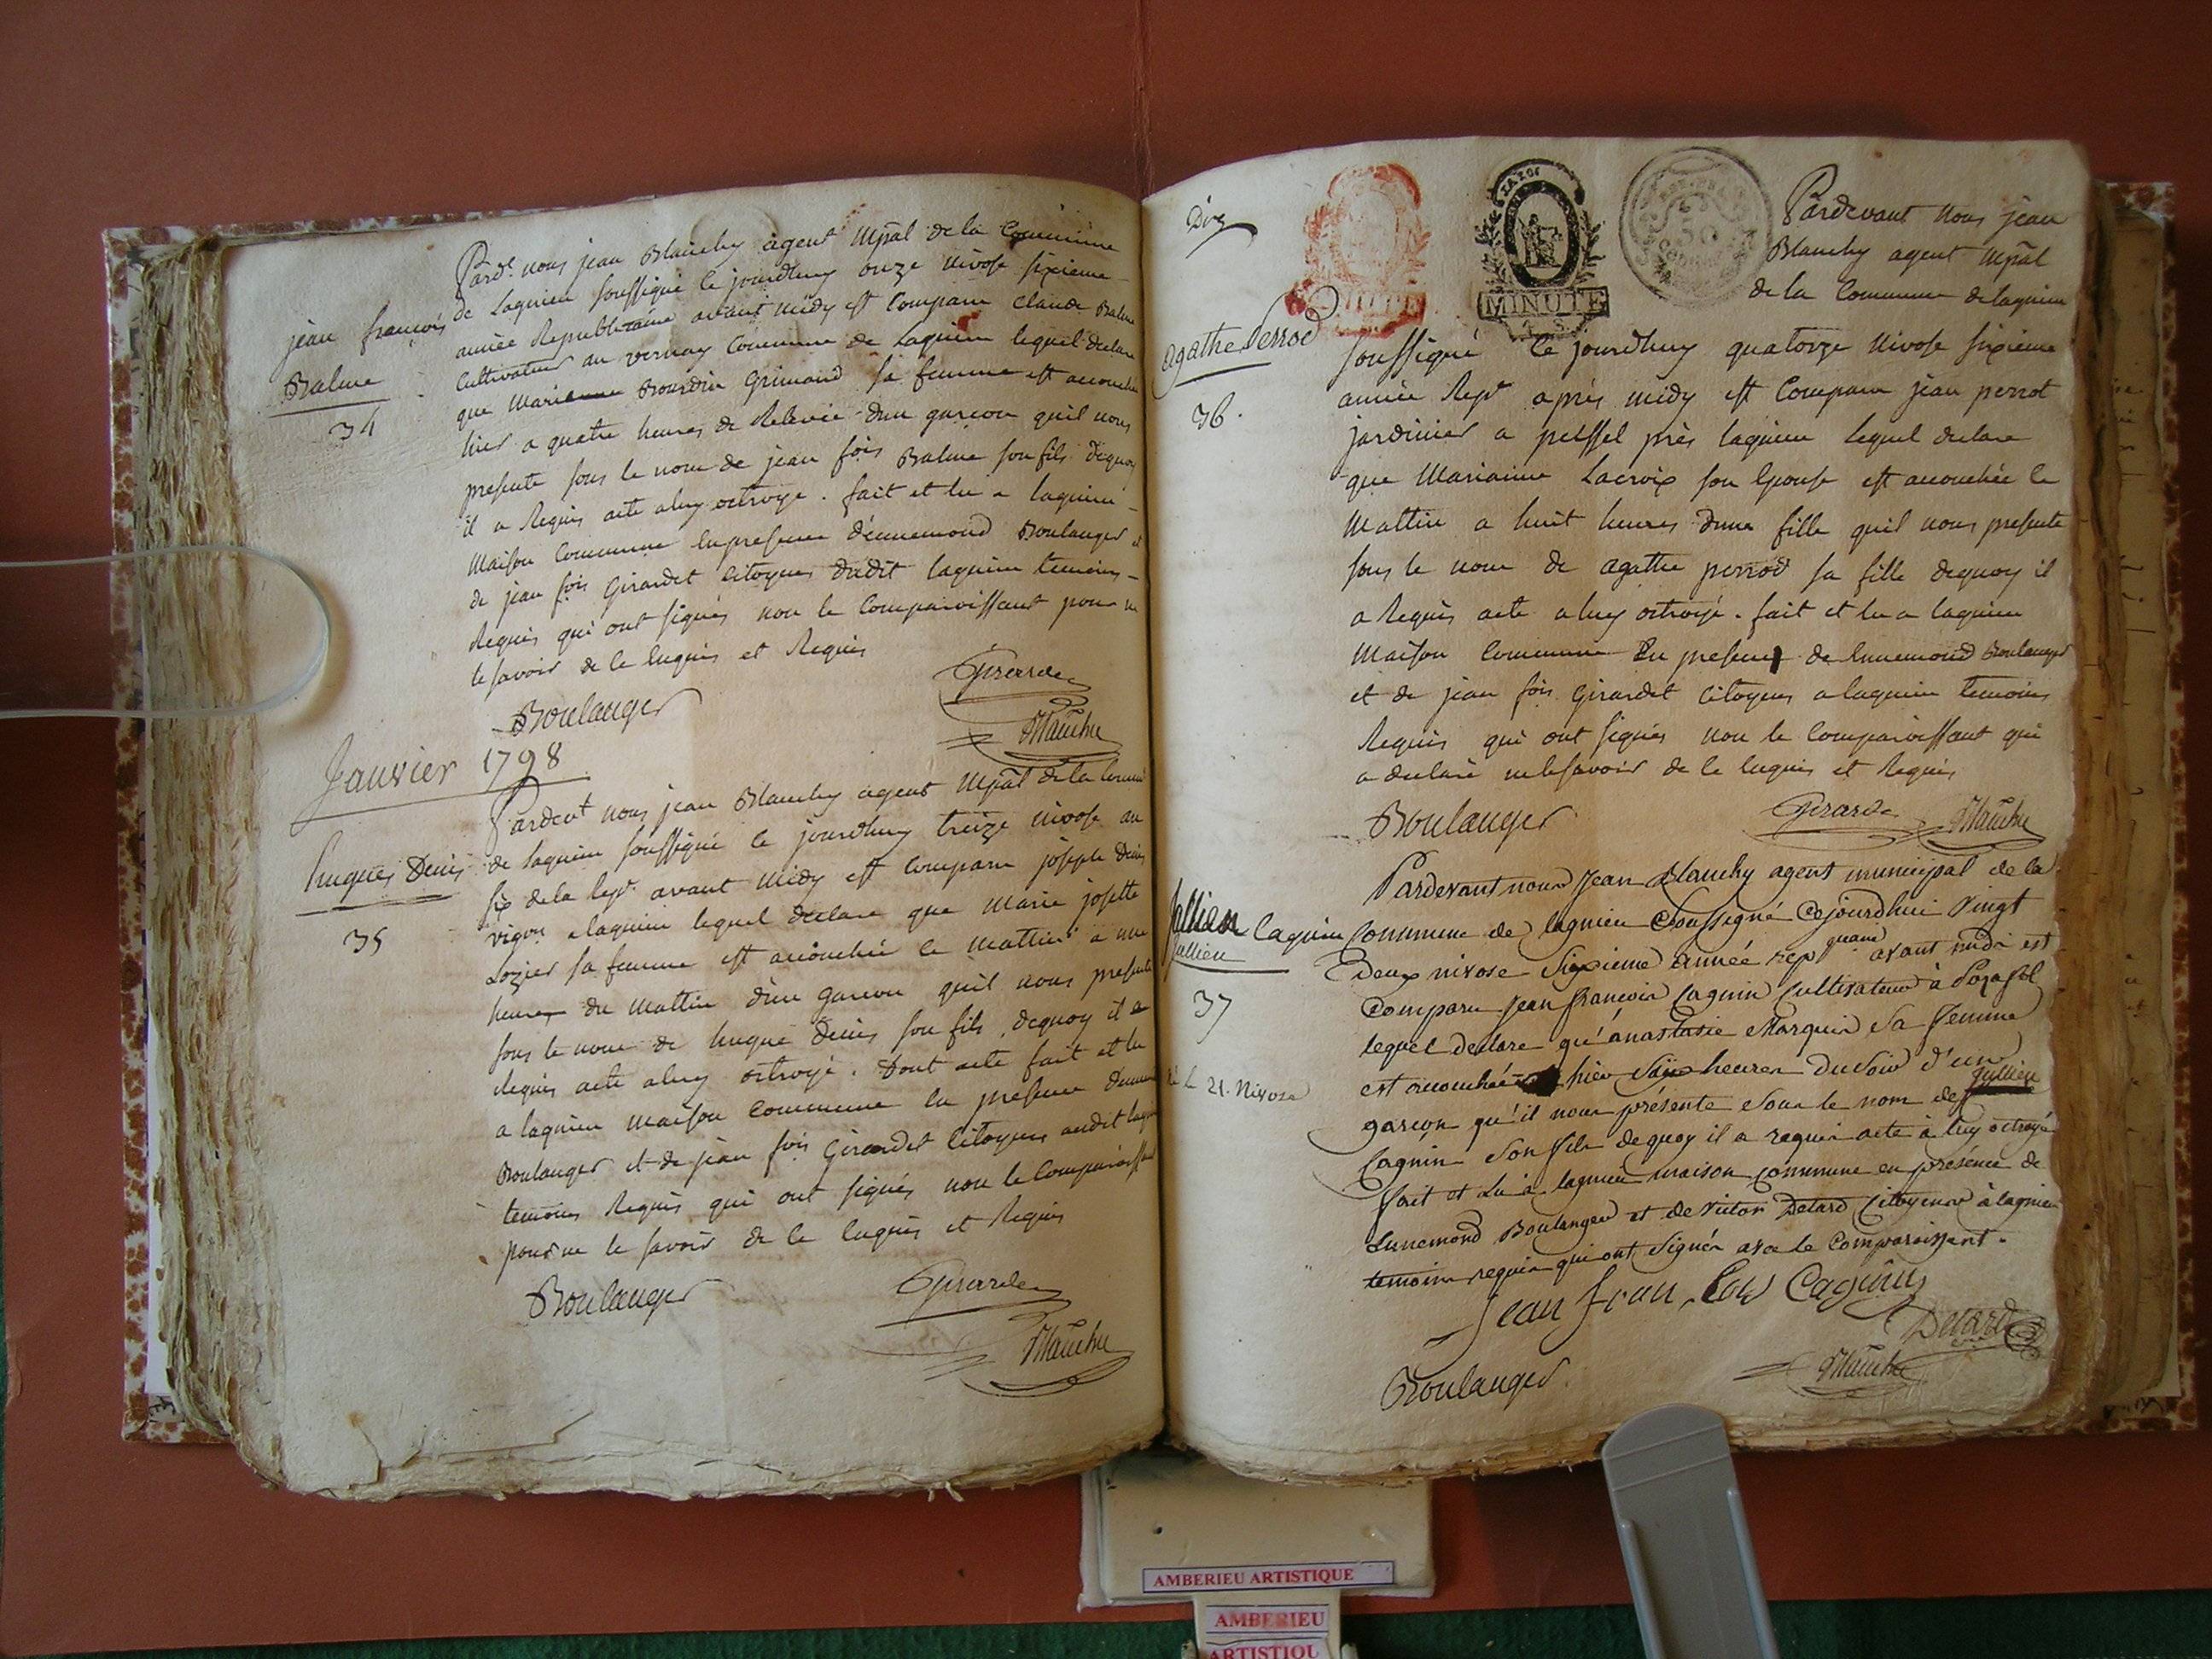 Pard.t nous jean Blanchy agent mpāl de la Commune
de Lagnieu soussigné Ce jourdhuy onze nivose sixieme
année Republicaine avant midy est Comparu Claude Balme
jean francois
Balme
34
Cultivateur au vernay Commune de Lagnieu lequel declare
que Marianne Bourdin Grimand sa femme est accouchée
hier a quatre heures de Relevée d'un garcon quil nous
presente sous le nom de jean fois Balme son fils dequoy
il a Requis acte a luy octroyé. fait et lu a lagnieu
Maison Commune en presence d'ennemond Boulanger et
de jean fois Girardet Citoyens dudit lagnieu temoins
Requis qui ont signés non le Comparoissant pour ne
le savoir de ce Enquis et Requis
Boulanger
Girardet
Blanchy
Janvier 1798
Pardevt nous jean Blanchy agent mpāl de la Commune
de lagnieu soussigné Ce jourdhuy treize nivose an
Hugues Denis
35
six de la Rep.e avant Midy est Comparu joseph Denis
vigon a lagnieu lequel declare que Marie josette
Lozier sa femme est accouchée ce mattin a une
heures du Mattin d'un garcon quil nous presente
sous le nom de hugue Denis son fils, dequoy il a
Requis acte a luy octroyé. Dont acte fait et lu
a lagnieu Maison Commune en presence
Boulanger et de jean fois Girardet Citoyens audit
temoins Requis qui ont signés non le Comparoissant
pour ne le savoir de ce Enquis et Requis
Boulanger
Girardet
Blanchy
Dix
MINUTE
Pardevant nous jean
Blanchy agent mpāl
de la Commune de lagnieu
agathe Perrod
36.
soussigné Ce jourdhuy quatorze Nivose sixieme
année Rep.e après midy est Comparu jean perrot
jardinier a près lagnieu lequel declare
que Marianne Lacroix son Epouse est accouchée Ce
Mattin a huit heures d'une fille quil nous presente
sous le nom de agathe perrod sa fille dequoy il
a Requis acte a luy octroyé. fait et lu a lagnieu
Maison Commune En presence de Ennemond Boulanger
et de jean fois Girardet Citoyens a lagnieu temoins
Requis qui ont signés non le Comparoissant qui
a declaré ne le savoir de ce Enquis et Requis
Boulanger
Girardet
Blanchy
Pardevant nous Jean Blanchy agent municipal de la
Jullien Cagnin
Jullien
37
né le 21. Nivose
Commune de lagnieu Soussigné Cejourd'hui Vingt
Deux nivose Sixieme année repquaine avant midi est
Comparu Jean francois Cagnin Cultivateur à Posafol
lequel declare qu'anastasie Marquis Sa femme
est accouchée hier Six heures Du Soir d'un
garçon qu'il nous présente Sous le nom de Jullien
Cagnin Son fils dequoy il a requis acte à luy octroyé
fait et Lu à lagnieu maison commune en présence de
Ennemond Boulanger et de Victor Detard Citoyens à lagnieu
temoins requis qui ont Signés avec le Comparoissant.
Jean fran Cois Cagnin
Detard
Blanchy
Boulanger
AMBERIEU ARTISTIQUE
AMBERIEU
ARTISTIQU